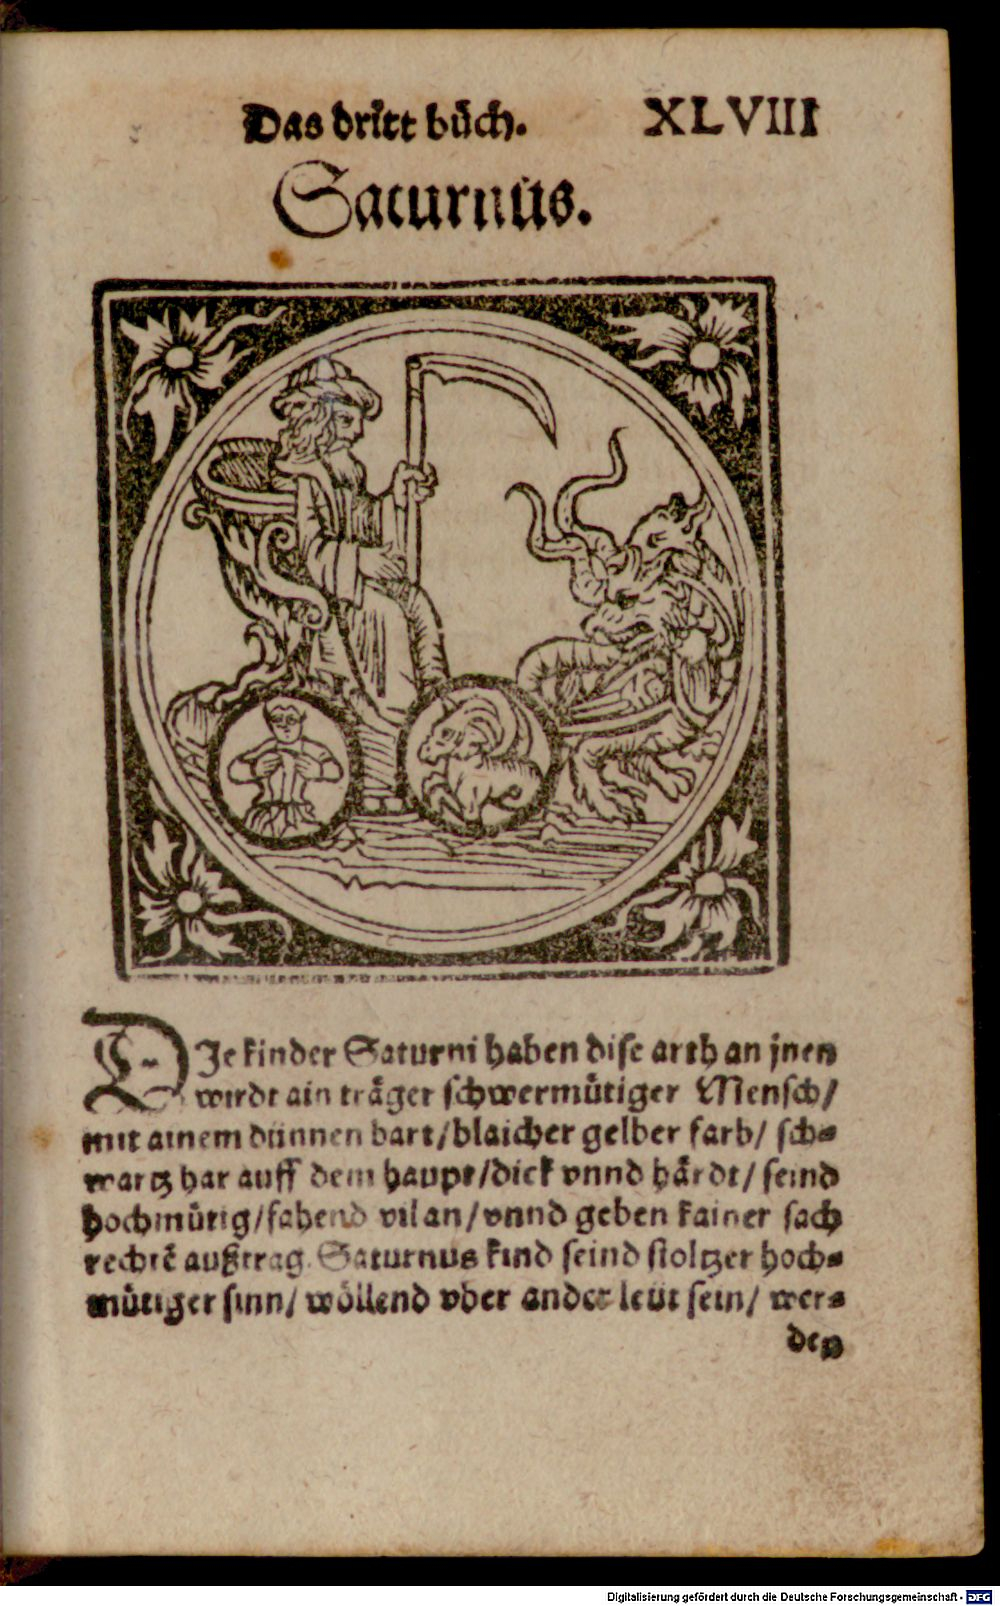 Das dritt bůch. XLVIII
Saturnus.
DIe kinder Saturni haben dise arth an jnen
wirdt ain träger schwermütiger Mensch/
mit ainem dünnen bart/blaicher gelber farb/ sch⸗
wartz har auff dem haupt/dick vnnd härdt/ seind
hochmütig/fahend vil an/vnnd geben kainer sach
rechtē außtrag. Saturnus kind seind stoltzer hoch⸗
mütiger sinn/ wöllend vber ander leüt sein/ wer⸗
den
Digitalisierung gefördert durch die Deutsche Forschungsgemeinschaft - DFG